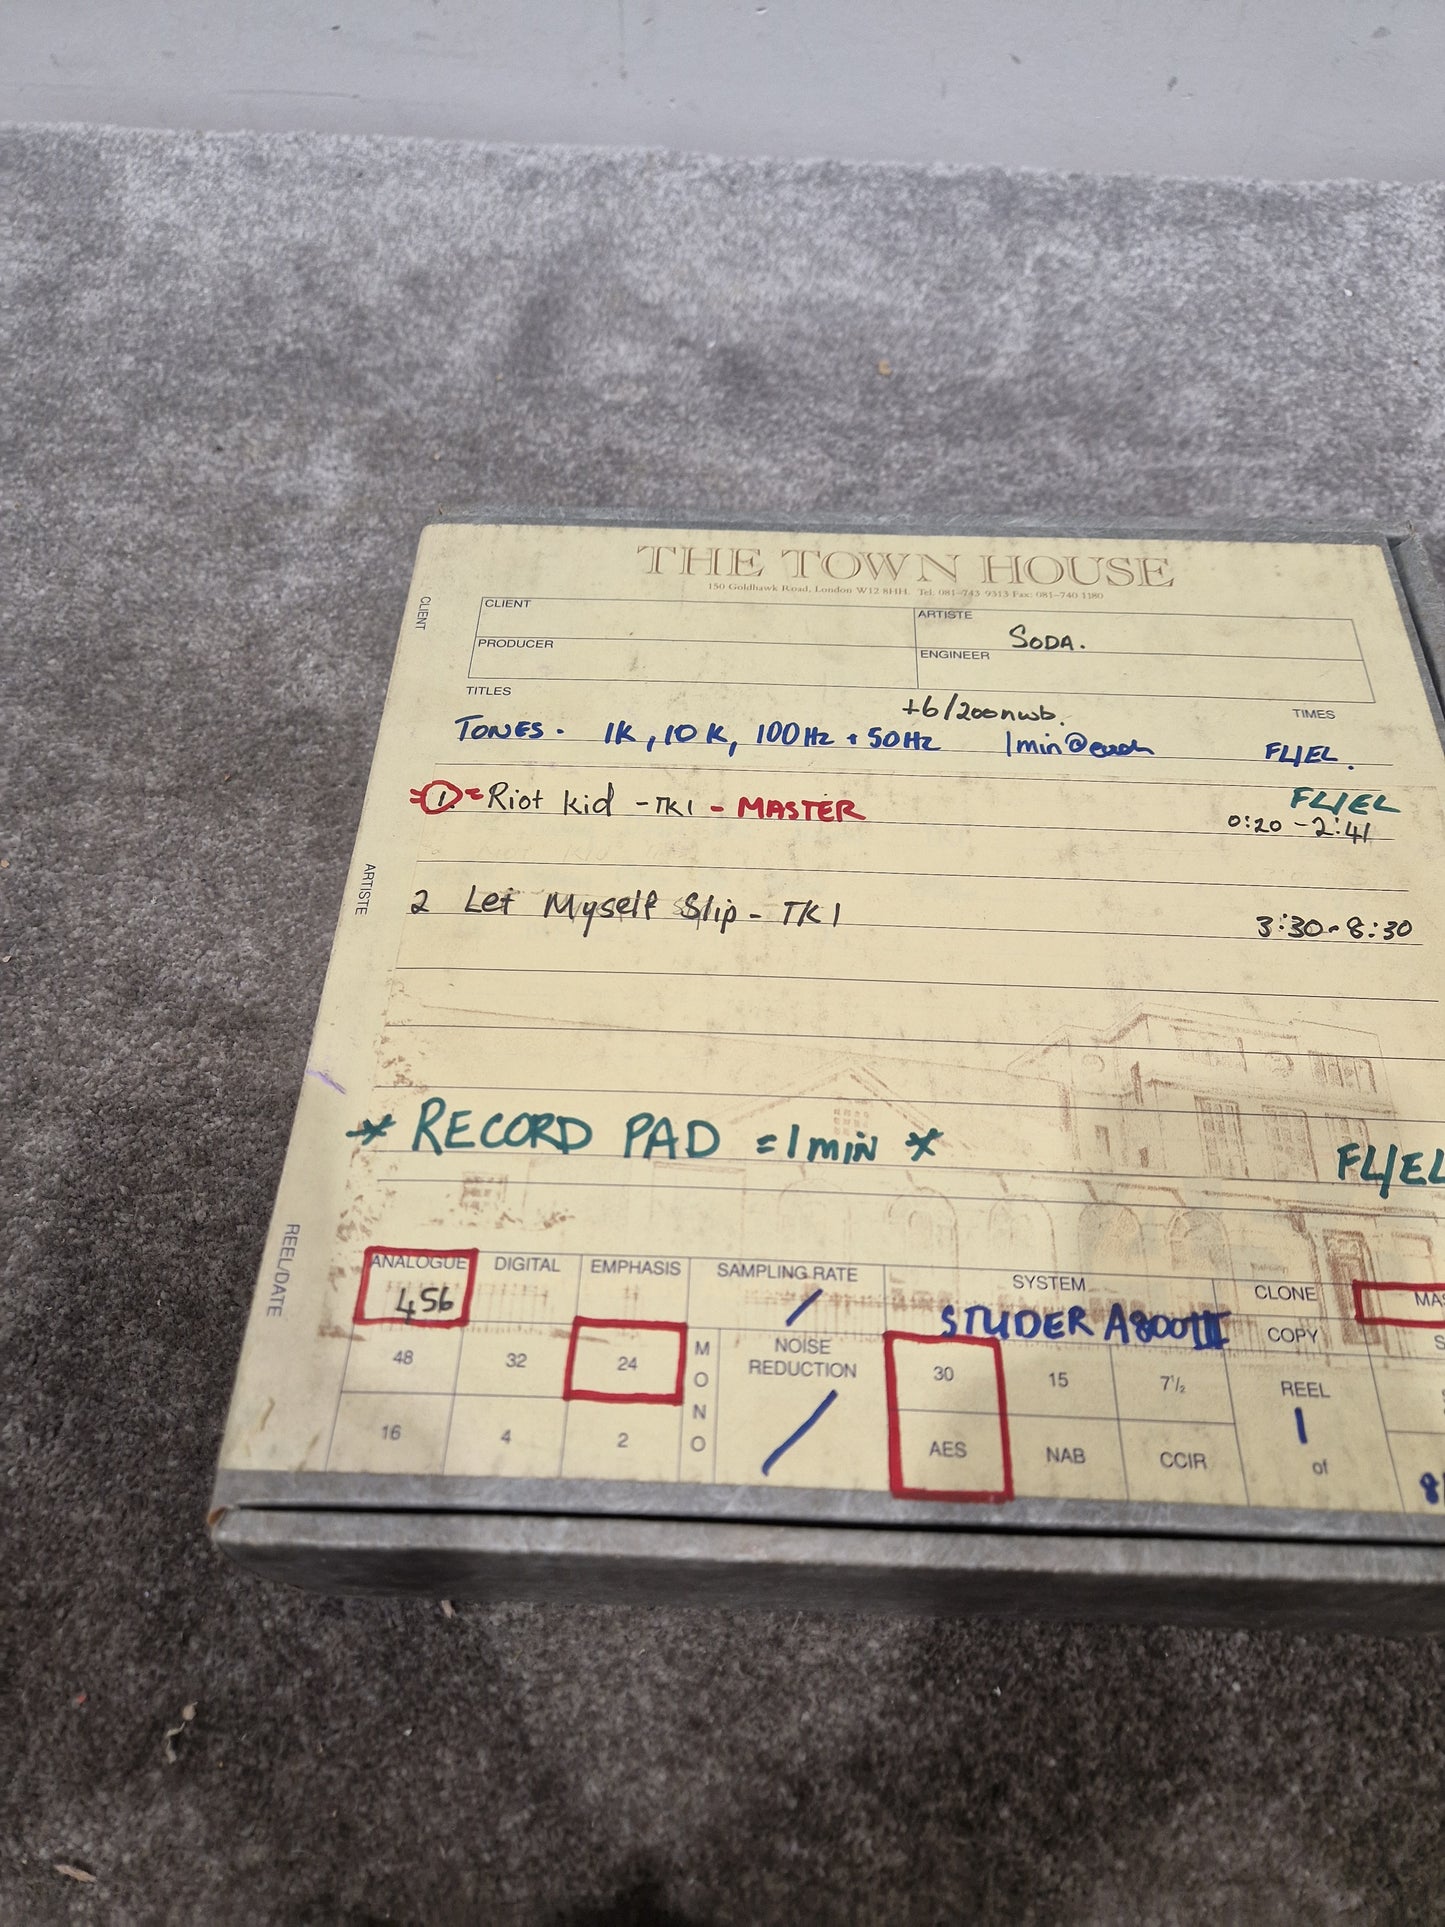 THE TOWN HOUSE
150 Goldhawk Road, London W12 8HH. Tel: 081-743 9313 Fax: 081-740 1180
CLIENT
CLIENT
ARTISTE
SODA.
PRODUCER
ENGINEER
TITLES
+6/200nwb.
TIMES
TONES. 1K, 10K, 100Hz + 50Hz 1min@each FL/EL.
=1.= Riot kid - TK1 - MASTER
FL/EL
0:20 - 2:41
ARTISTE
2 Let Myself Slip - TK1 3:30 - 8:30
* RECORD PAD = 1min * FL/EL
REEL/DATE
ANALOGUE DIGITAL EMPHASIS SAMPLING RATE SYSTEM CLONE MAS
456 / STUDER A800III COPY S
48 32 24 MONO NOISE REDUCTION 30 15 7½ REEL
16 4 2 / AES NAB CCIR 1
of